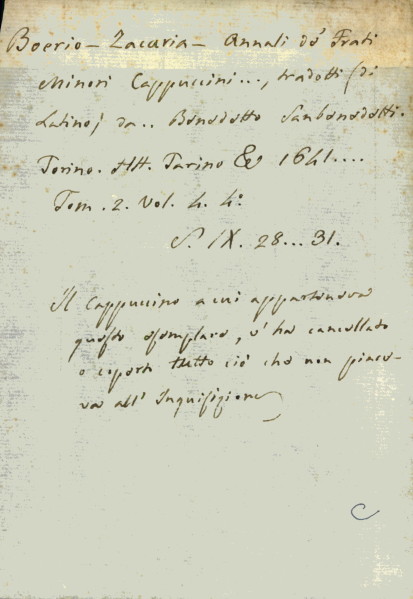 Boerio - Zacaria - Annali de' Frati
Minori Cappuccini..., tradotti (di
Latino) da.. Benedetto Sanbenedetti.
Torino. Tarino & 1641....
Tom. 2. Vol. 4. 4°
S. IX. 28...31.
Il Cappuccino a cui apparteneva
questo esemplare, v' ha cancellato
o coperto tutto ciò che non piace-
va all' Inquisizione
C